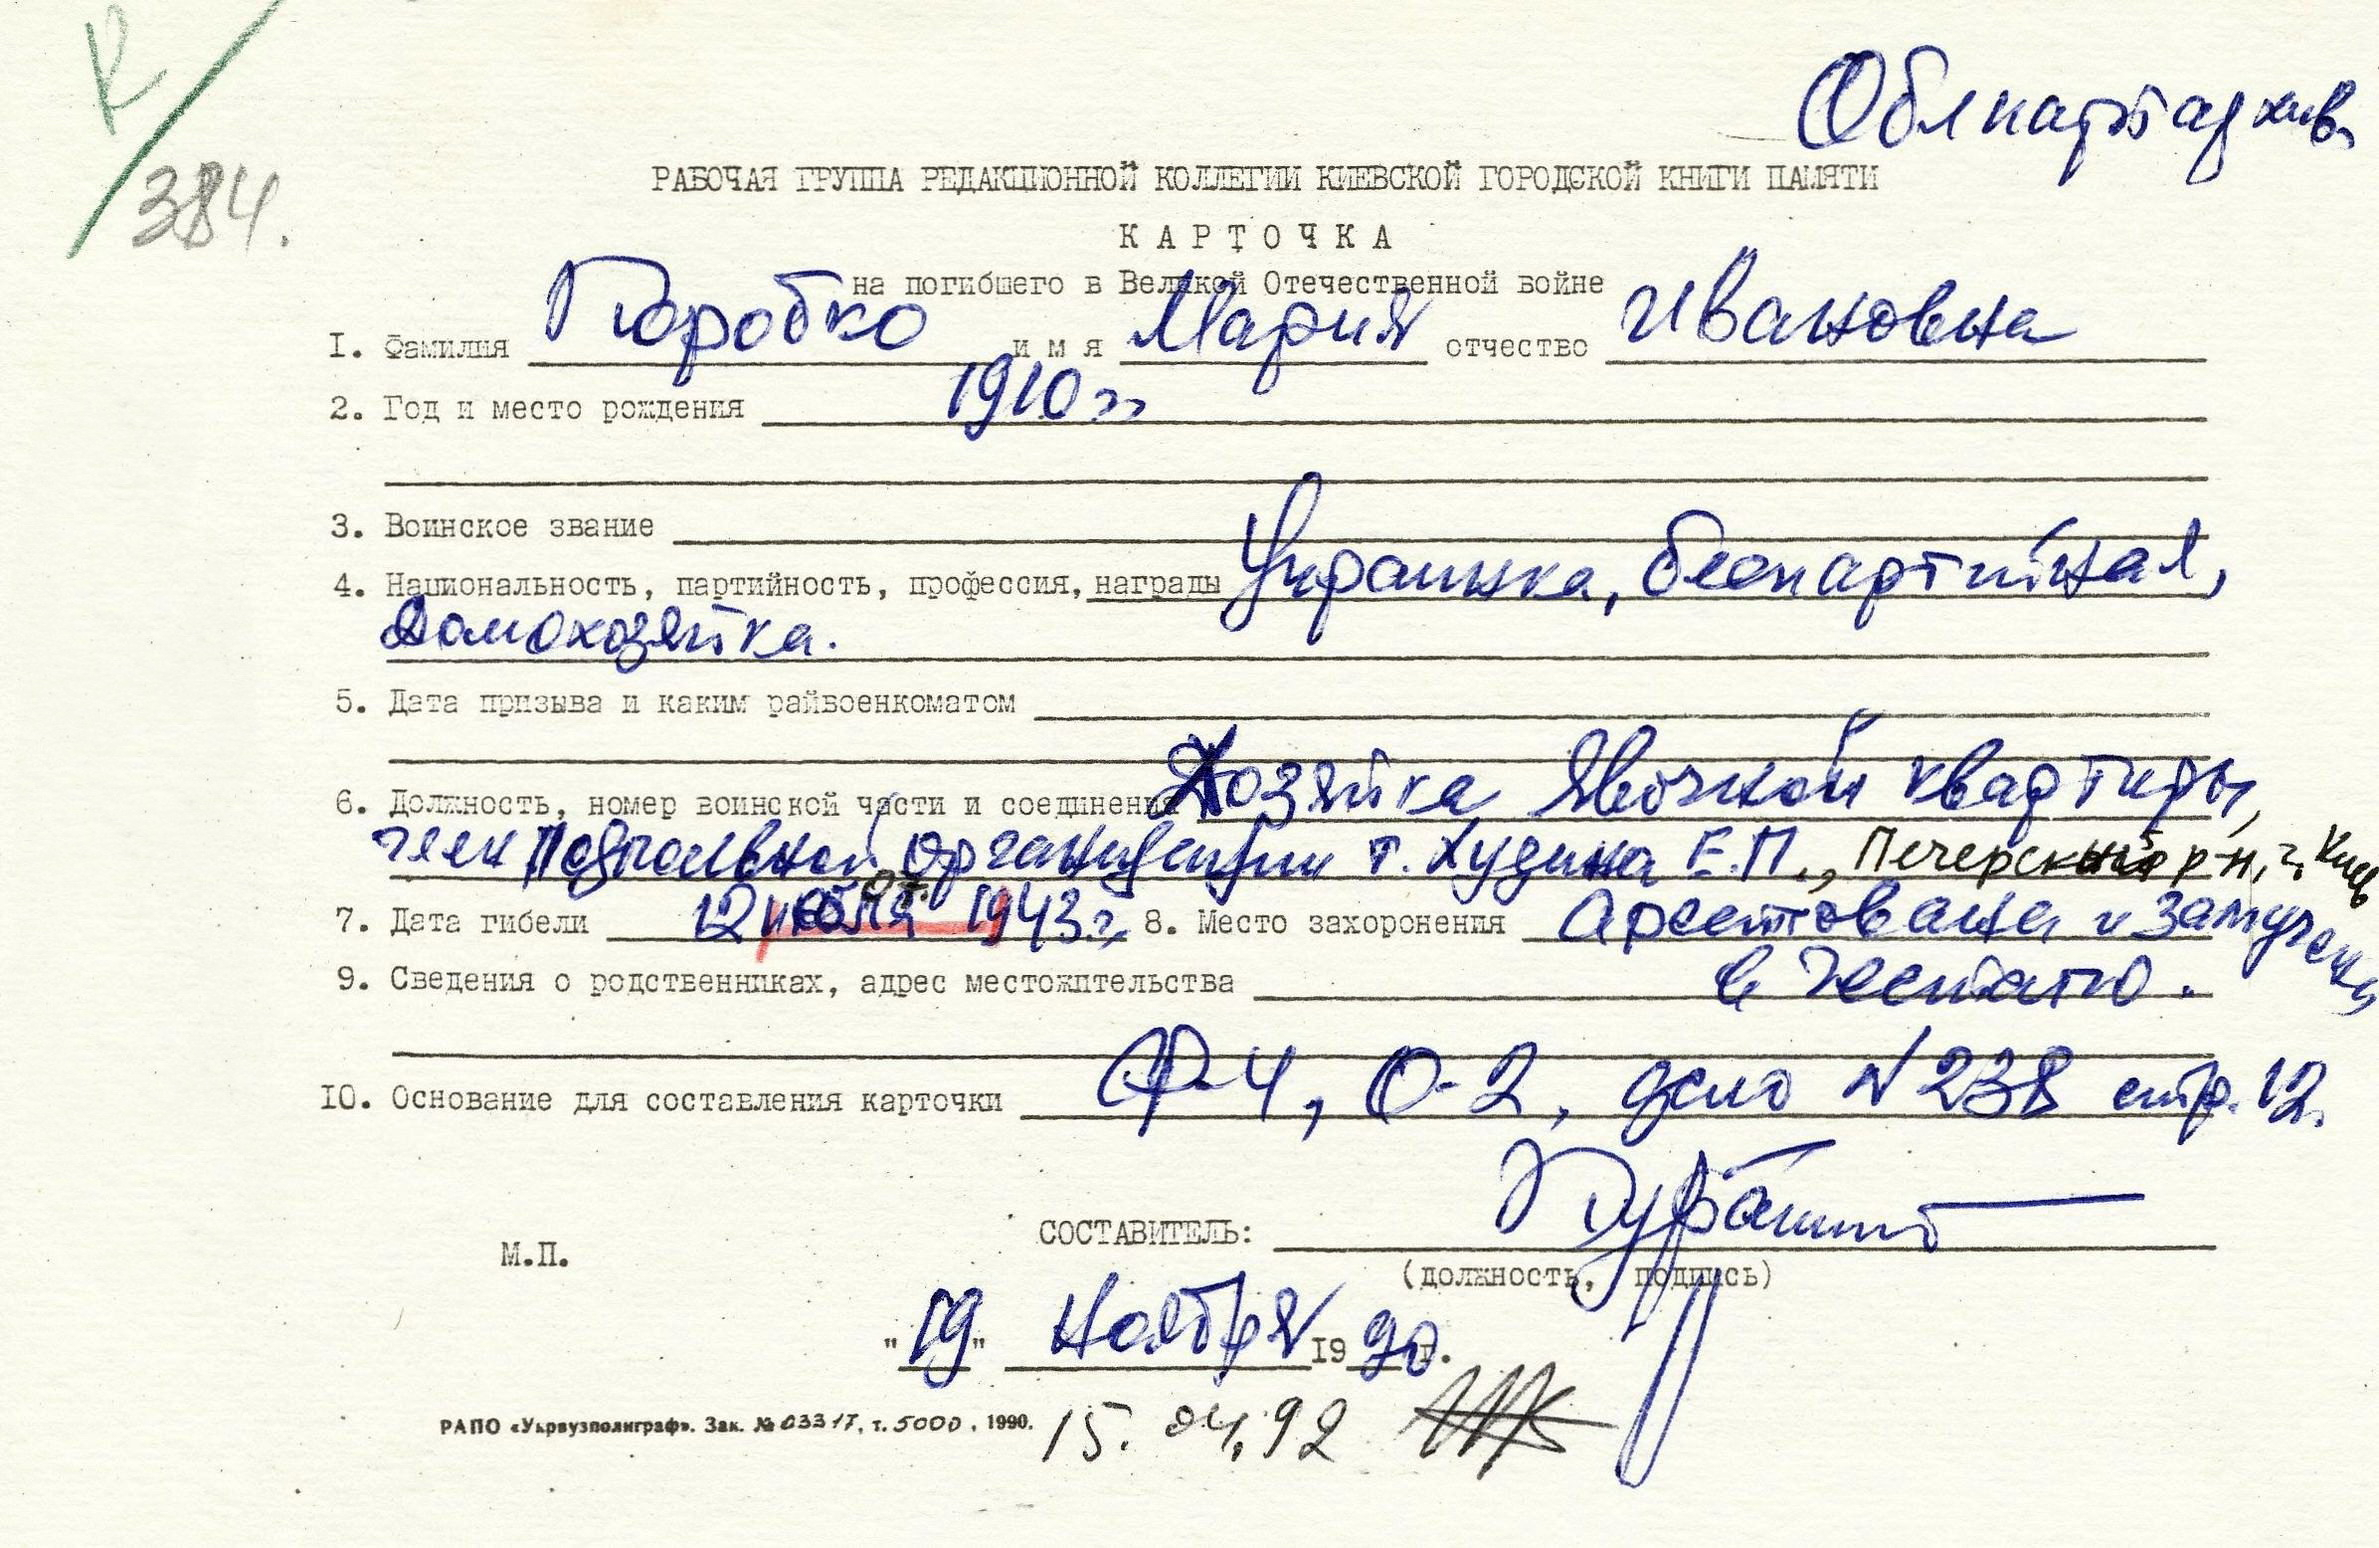 К/384.
Облпартархив
РАБОЧАЯ ГРУППА РЕДАКЦИОННОЙ КОЛЛЕГИИ КИЕВСКОЙ ГОРОДСКОЙ КНИГИ ПАМЯТИ
КАРТОЧКА
на погибшего в Великой Отечественной войне
I. Фамилия Коробко имя Мария отчество Ивановна
2. Год и место рождения 1910 г.
3. Воинское звание
4. Национальность, партийность, профессия, награды Украинка, беспартийная,
домохозяйка.
5. Дата призыва и каким райвоенкоматом
6. Должность, номер воинской части и соединения Хозяйка явочной квартиры,
член подпольной организации т. Хузина Е.П., Печерский р-н, г. Киев
7. Дата гибели 12 июля 07. 1943 г. 8. Место захоронения Арестована и замучена
в гестапо.
9. Сведения о родственниках, адрес местожительства
10. Основание для составления карточки Ф-4, О-2, дело N 238 стр. 12.
СОСТАВИТЕЛЬ:
М.П.
(должность, подпись)
"19" Ноября 1990 г.
РАПО «Укрвузполиграф». Зак. № 03317, т. 5000, 1990.
15.04.92